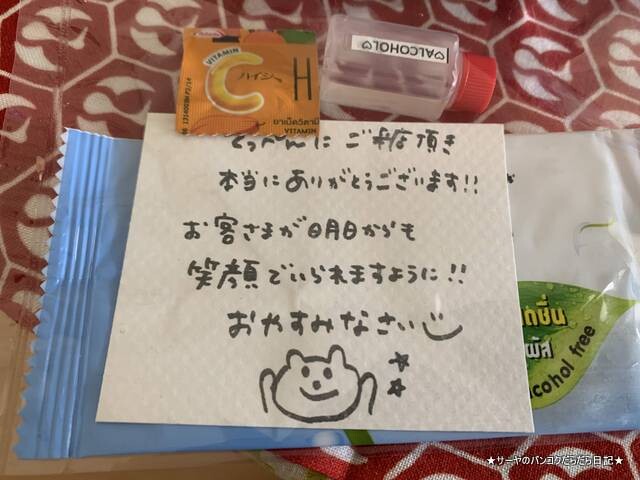 VITAMIN
C
ハイシー
H
ยาเม็ดวิตามิ
VITAMIN
♡ALCOHOL♡
てっぺんにご来店頂き
本当にありがとうございます!!
お客さまが明日からも
笑顔でいられますように!!
おやすみなさい
alcohol free
★サーヤのバンコクだらだら日記★